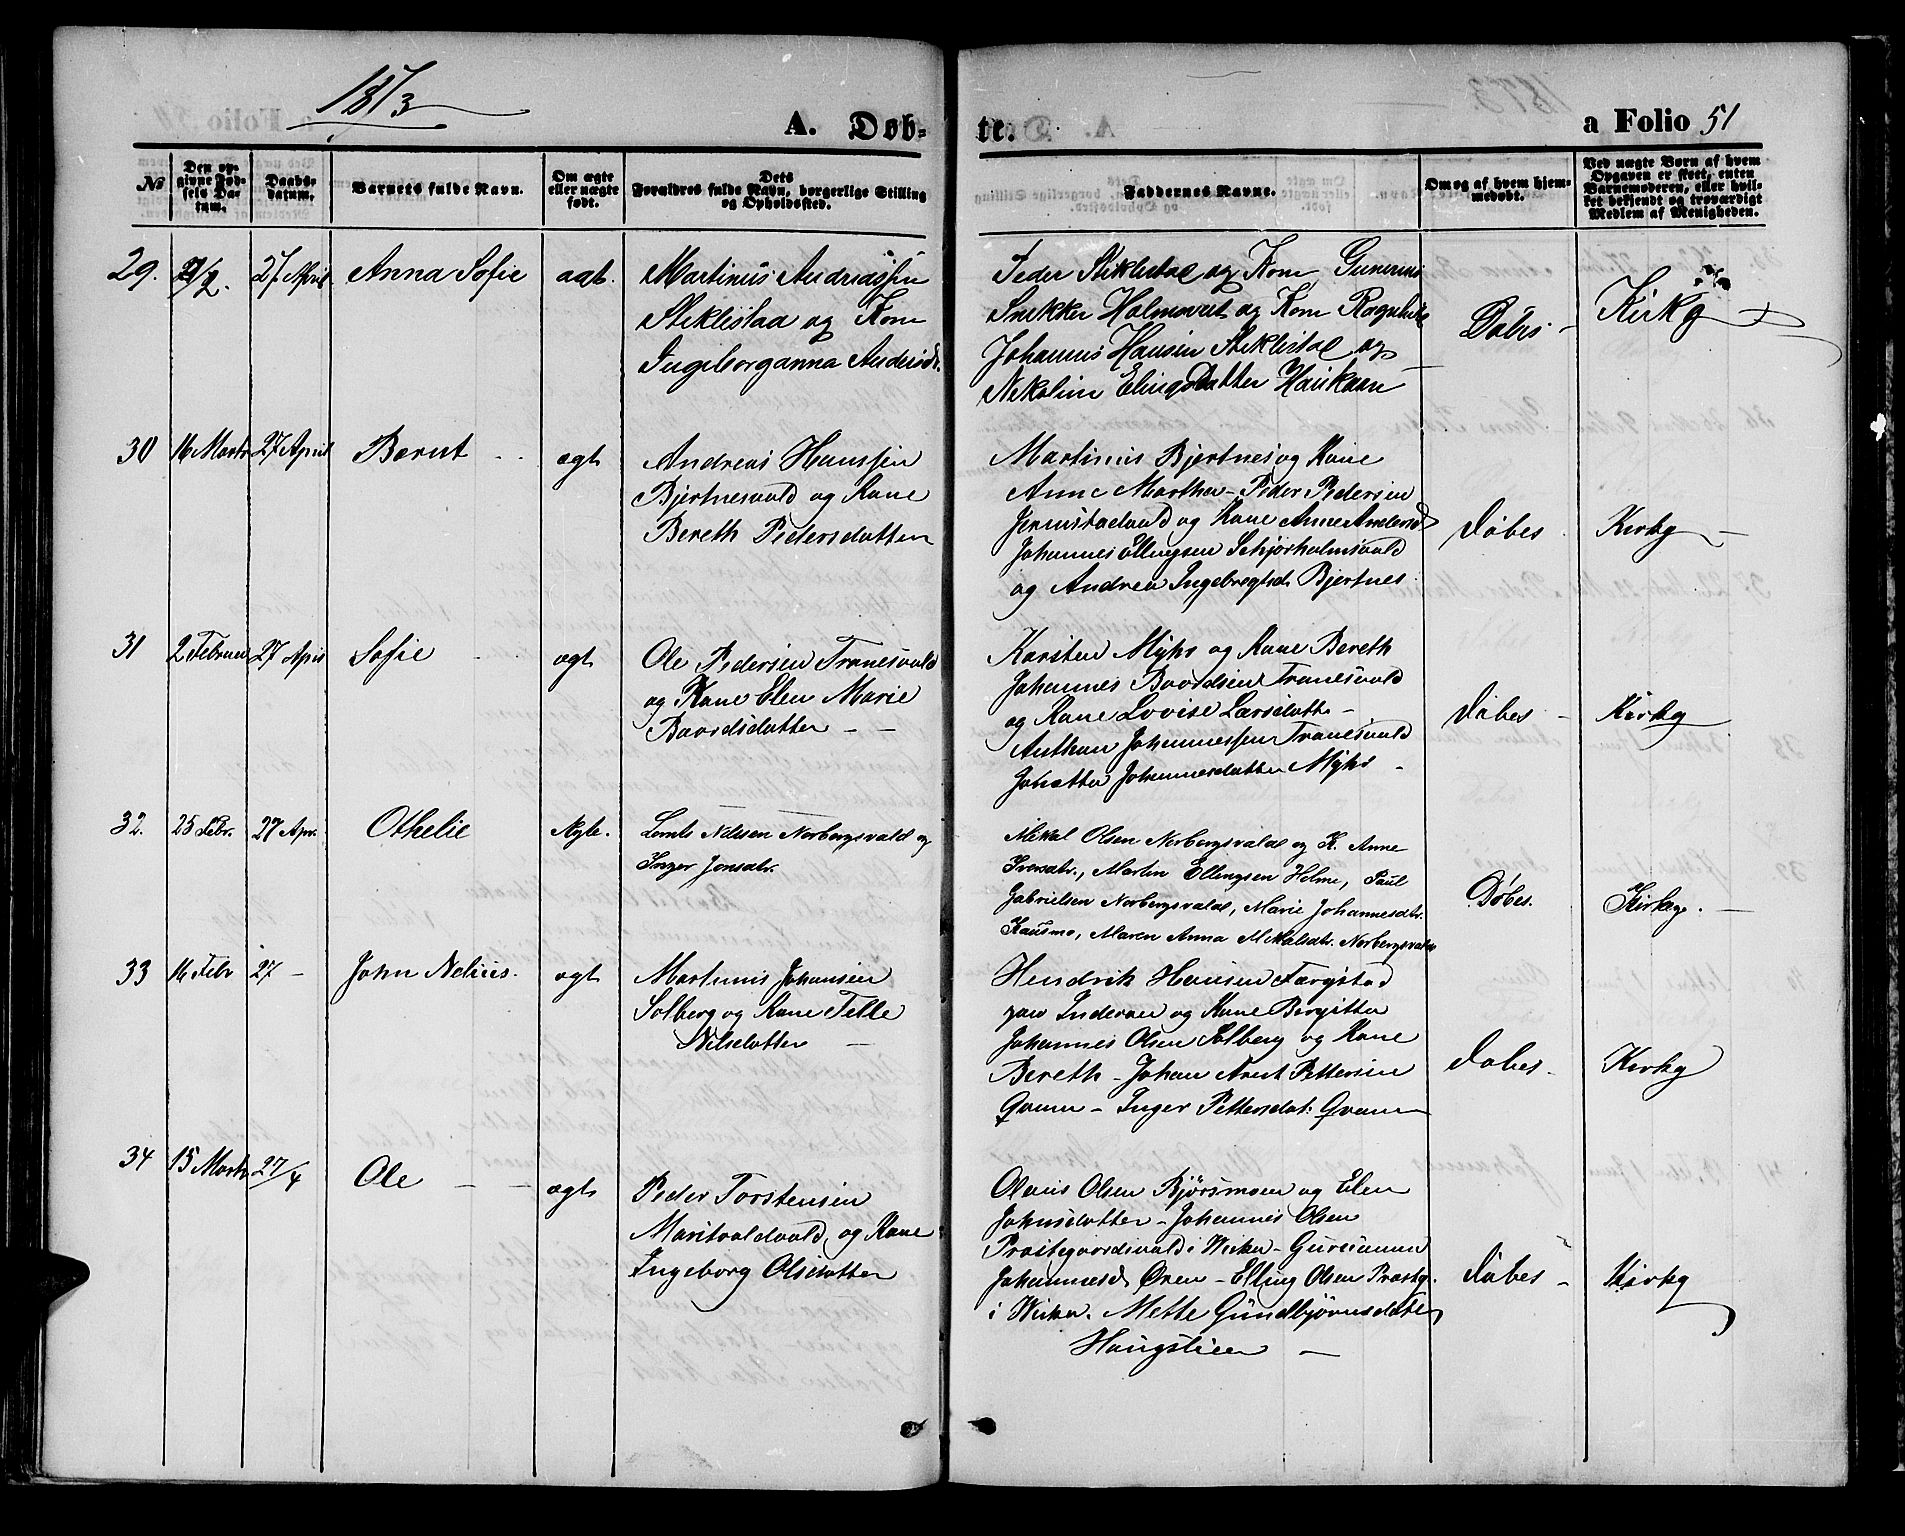 1873
A. Døb-
te.
a Folio 51
No
Den op-
givne Fød-
sels Da-
tum.
Daabs-
datum.
Barnets fulde Navn.
Om ægte
eller uægte
født.
Dets
Forældres fulde Navn, borgerlige Stilling
og Opholdssted.
Faddernes Navne.
Om og af hvem hjem-
medøbt.
Ved uægte Børn af hvem
Opgaven er skeet, enten
Barnemoderen, eller hvil-
ket bekjendt og troværdigt
Medlem af Menigheden.
29. 2/2. 27 April Anna Sofie ægt.
Martinus Andriassen
Stiklestad og Kone
Ingeborganna Andersd.
Peder Stiklestad og Kone
Snekker Holmsvet og Kone
Johannes Hansen Stiklestad og
Nekoline Elingsdatter Haukaan
Døbes - Kirkg
30 16 Marts 27 April Bernt ægt
Andreas Hanssen
Bjertnesvald og Kane
Bereth Pedersdatter
Martinus Bjertnes og Kane
Anne Martha - Peder Pedersen
Jermstadvald og Kane Anne Andersd
Johannes Ellingsen Schjørholmsvald
og Andrea Ingebregtsd. Bjertnes.
Døbes Kirkg
31 2 Februar 27 April Sofie ægt
Ole Pedersen Tranesvald
og Kane Elen Marie
Baardsdatter
Karsten Myhr og Kane Bereth
Johannes Baardsen Tranesvald
og Kane Lovise Larsdatte -
Anthon Johannessen Tranesvald
Jonetta Johannesdatter Myhr -
Døbes - Kirkg
32. 25 Febr. 27 Apr. Othelie Ægte.
Lornts Nilsen Norbergsvald og
Inger Jonsdtr.
Mikal Olsen Norbergsvald og K. Anne
Iversdtr., Martin Ellingsen Helme, Paul
Gabrielsen Norbergsvald, Marie Johannesdtr.
Kausmo, Maren Anna Mikalsdtr. Norbergsvald
Døbes. Kirkeg. -
33 16 Febr 27 - John Nelius. ægt
Martinus Johansen
Solberg og Kane
Nilsdatter
Hendrik Hansen Færgstad
paa Inderøen og Kane Bergitta
Johannes Olsen Solberg og Kane
Bereth - Johan Arnt Pettersen
Qvam - Inger Pettersdat: Qvam
Døbes - Kirkg
34 15 Marts 27/4 Ole ægt
Peder Torstensen
Maritvoldvald, og Kane
Ingeborg Olsdatter
Olaus Olsen Bjørsmoen og Elen
Johnsdatter - Johannes Olsen
Prestegaardsvald i -
Johannesd Øren - Elling Olsen Prestg.
i . Mette Gundbjørnsdatter
Haugslien -
Døbes - Kirkg